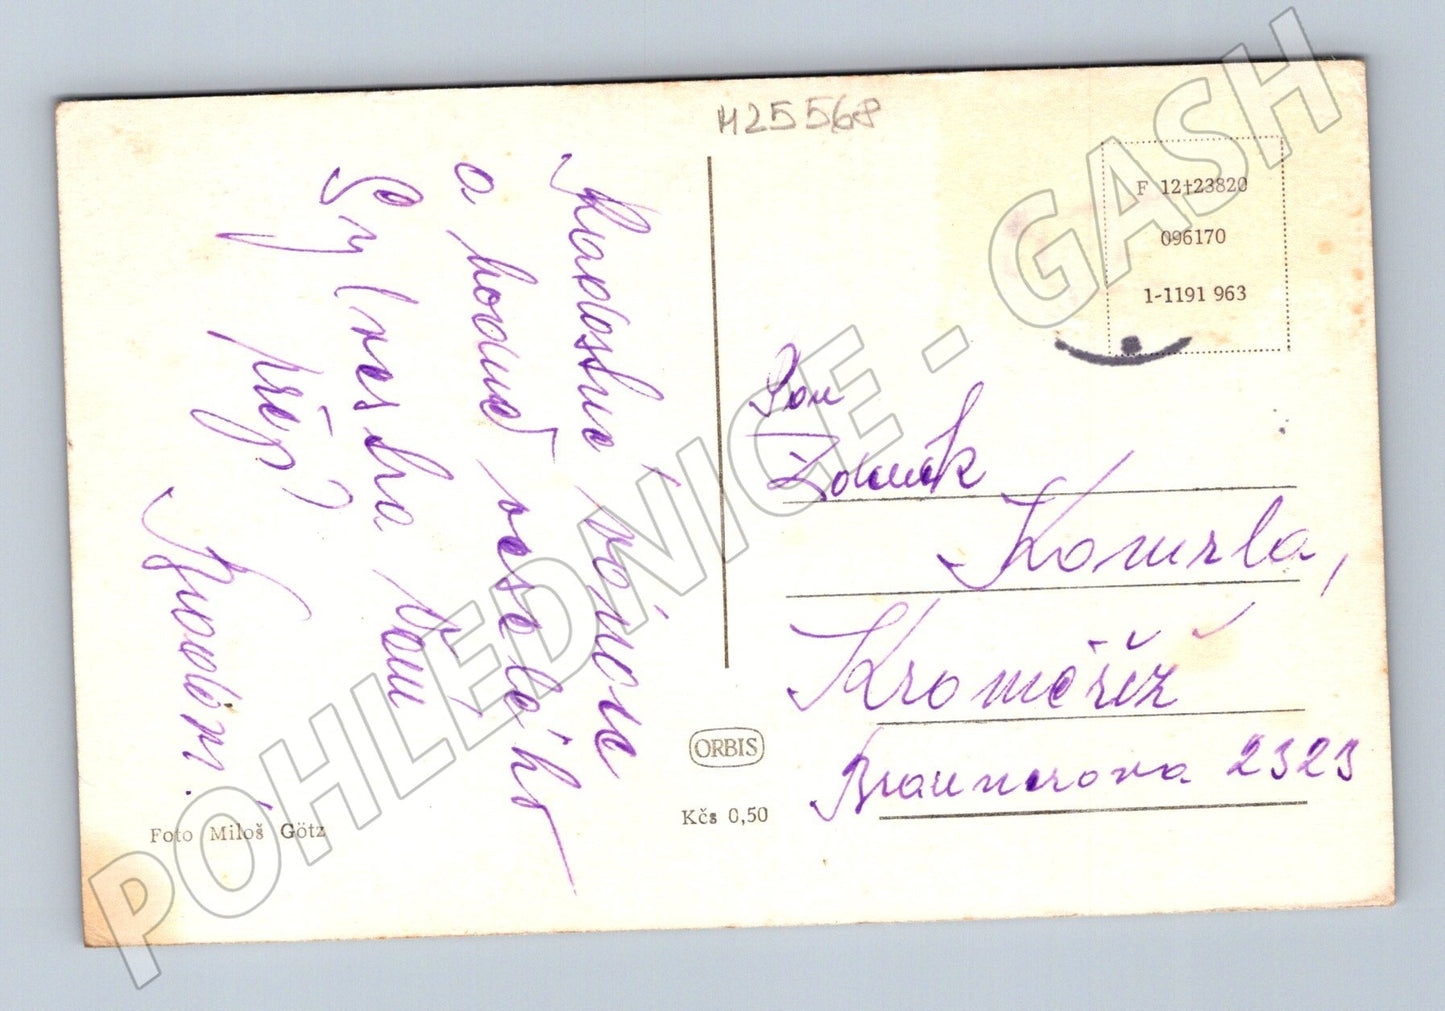 M25568
Radostné vánoce
a hodně veselého
Silvestra Vám
přeje
F 12†23820
096170
1-1191 963
Pan
Zdeněk
Komrla,
Kroměříž
Braunerova 2323
ORBIS
Kčs 0,50
Foto Miloš Götz
POHLEDNICE - GASH